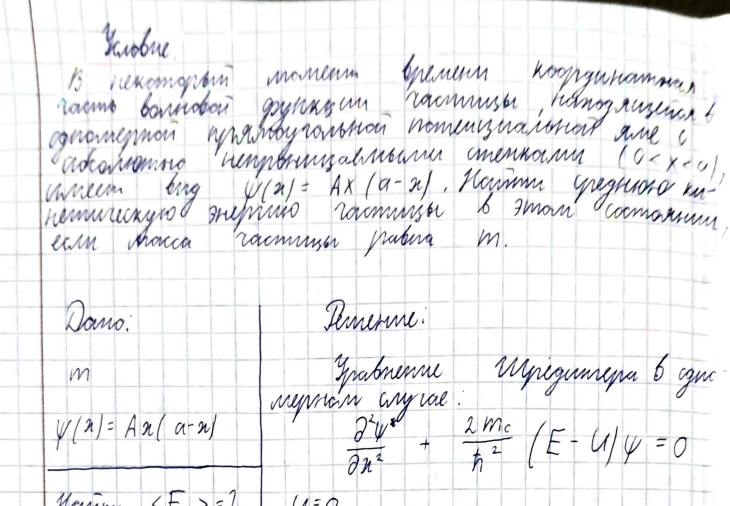 Условие
В некоторый момент времени координатная
часть волновой функции частицы, находящейся в
одномерной прямоугольной потенциальной яме с
абсолютно непроницаемыми стенками (0<x<a),
имеет вид ψ(x) = Ax(a-x). Найти среднюю ки-
нетическую энергию частицы в этом состоянии,
если масса частицы равна m.
Дано:
m
ψ(x) = Ax(a-x)
Найти <E >=?
Решение:
Уравнение Шредингера в одно
мерном случае:
∂²ψ/∂x² + 2m/ħ² (E-U)ψ = 0
U=0